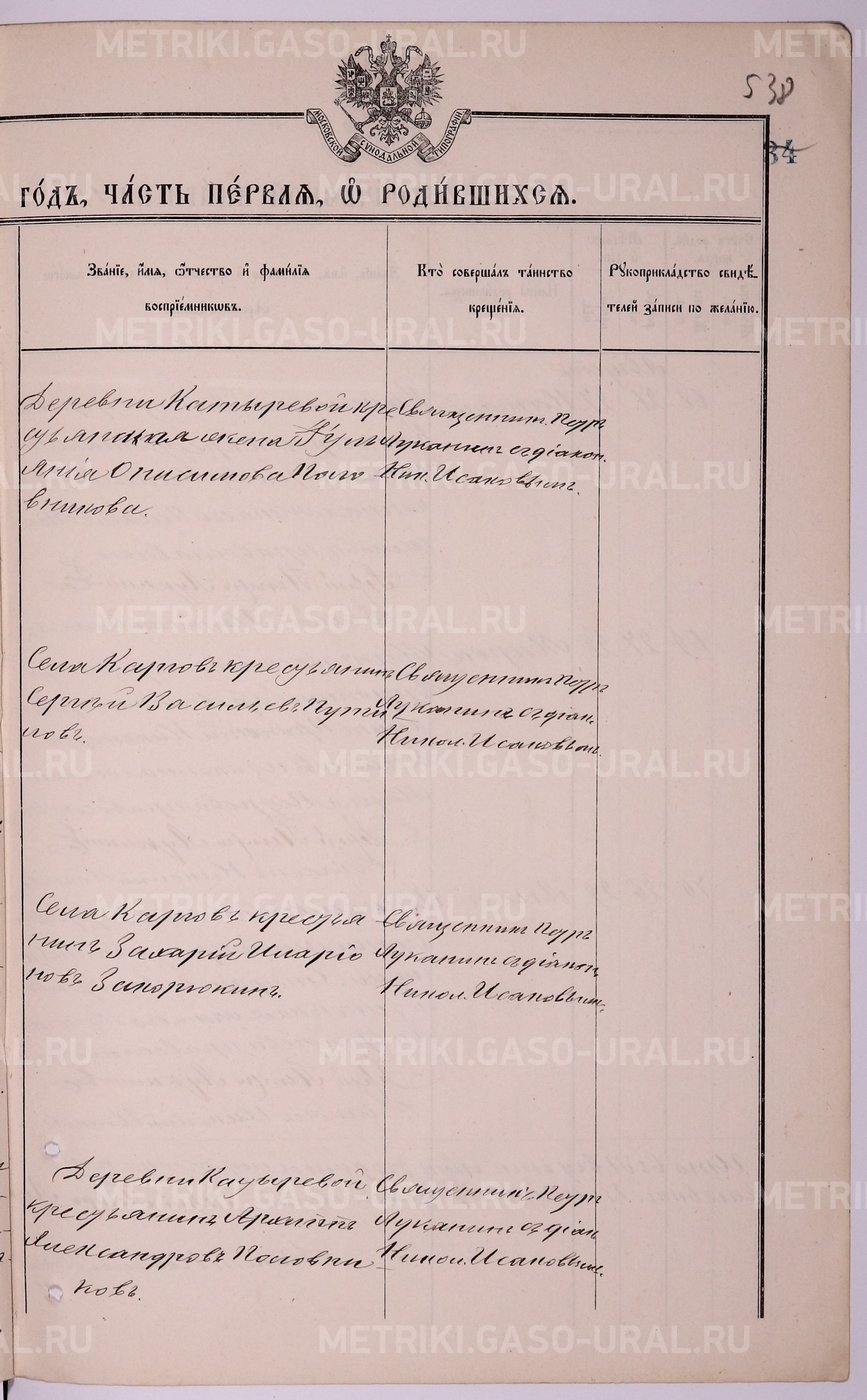 538
34
МОСКОВСКОЙ СѴНОДАЛЬНОЙ ТИПОГРАФІИ
го́дъ, ча́сть пе́рвая, ѡ҆ роди́вшихся.
Зва́нїе, и҆́мя, ѻ҆́тчество и҆ фами́лїя
воспрїе́мникѡвъ.
Кто̀ соверша́лъ та́инство
креще́нїя.
Рꙋкоприкла́дство свидѣ́-
телей за́писи по жела́нїю.
Деревни Катыревой кре
стьянская жена Іул
ianія Онисимова Поло
вникова.
Священникъ Петръ
Луканинъ съ діакон.
Ник. Исаковымъ.
Села Карговъ крестьянинъ
Сергѣй Васильевъ Пути
ловъ.
Священникъ Петръ
Луканинъ съ діак.
Никол. Исаковымъ.
Села Карговъ крестья
нинъ Захарій Иларіо
новъ Закорюкинъ.
Священникъ Петръ
Луканинъ съ діакон.
Никол. Исаковымъ.
Деревни Катыревой
крестьянинъ Архиппъ
Александровъ Половни
ковъ.
Священникъ Петръ
Луканинъ съ діак.
Никол. Исаковымъ.
METRIKI.GASO-URAL.RU